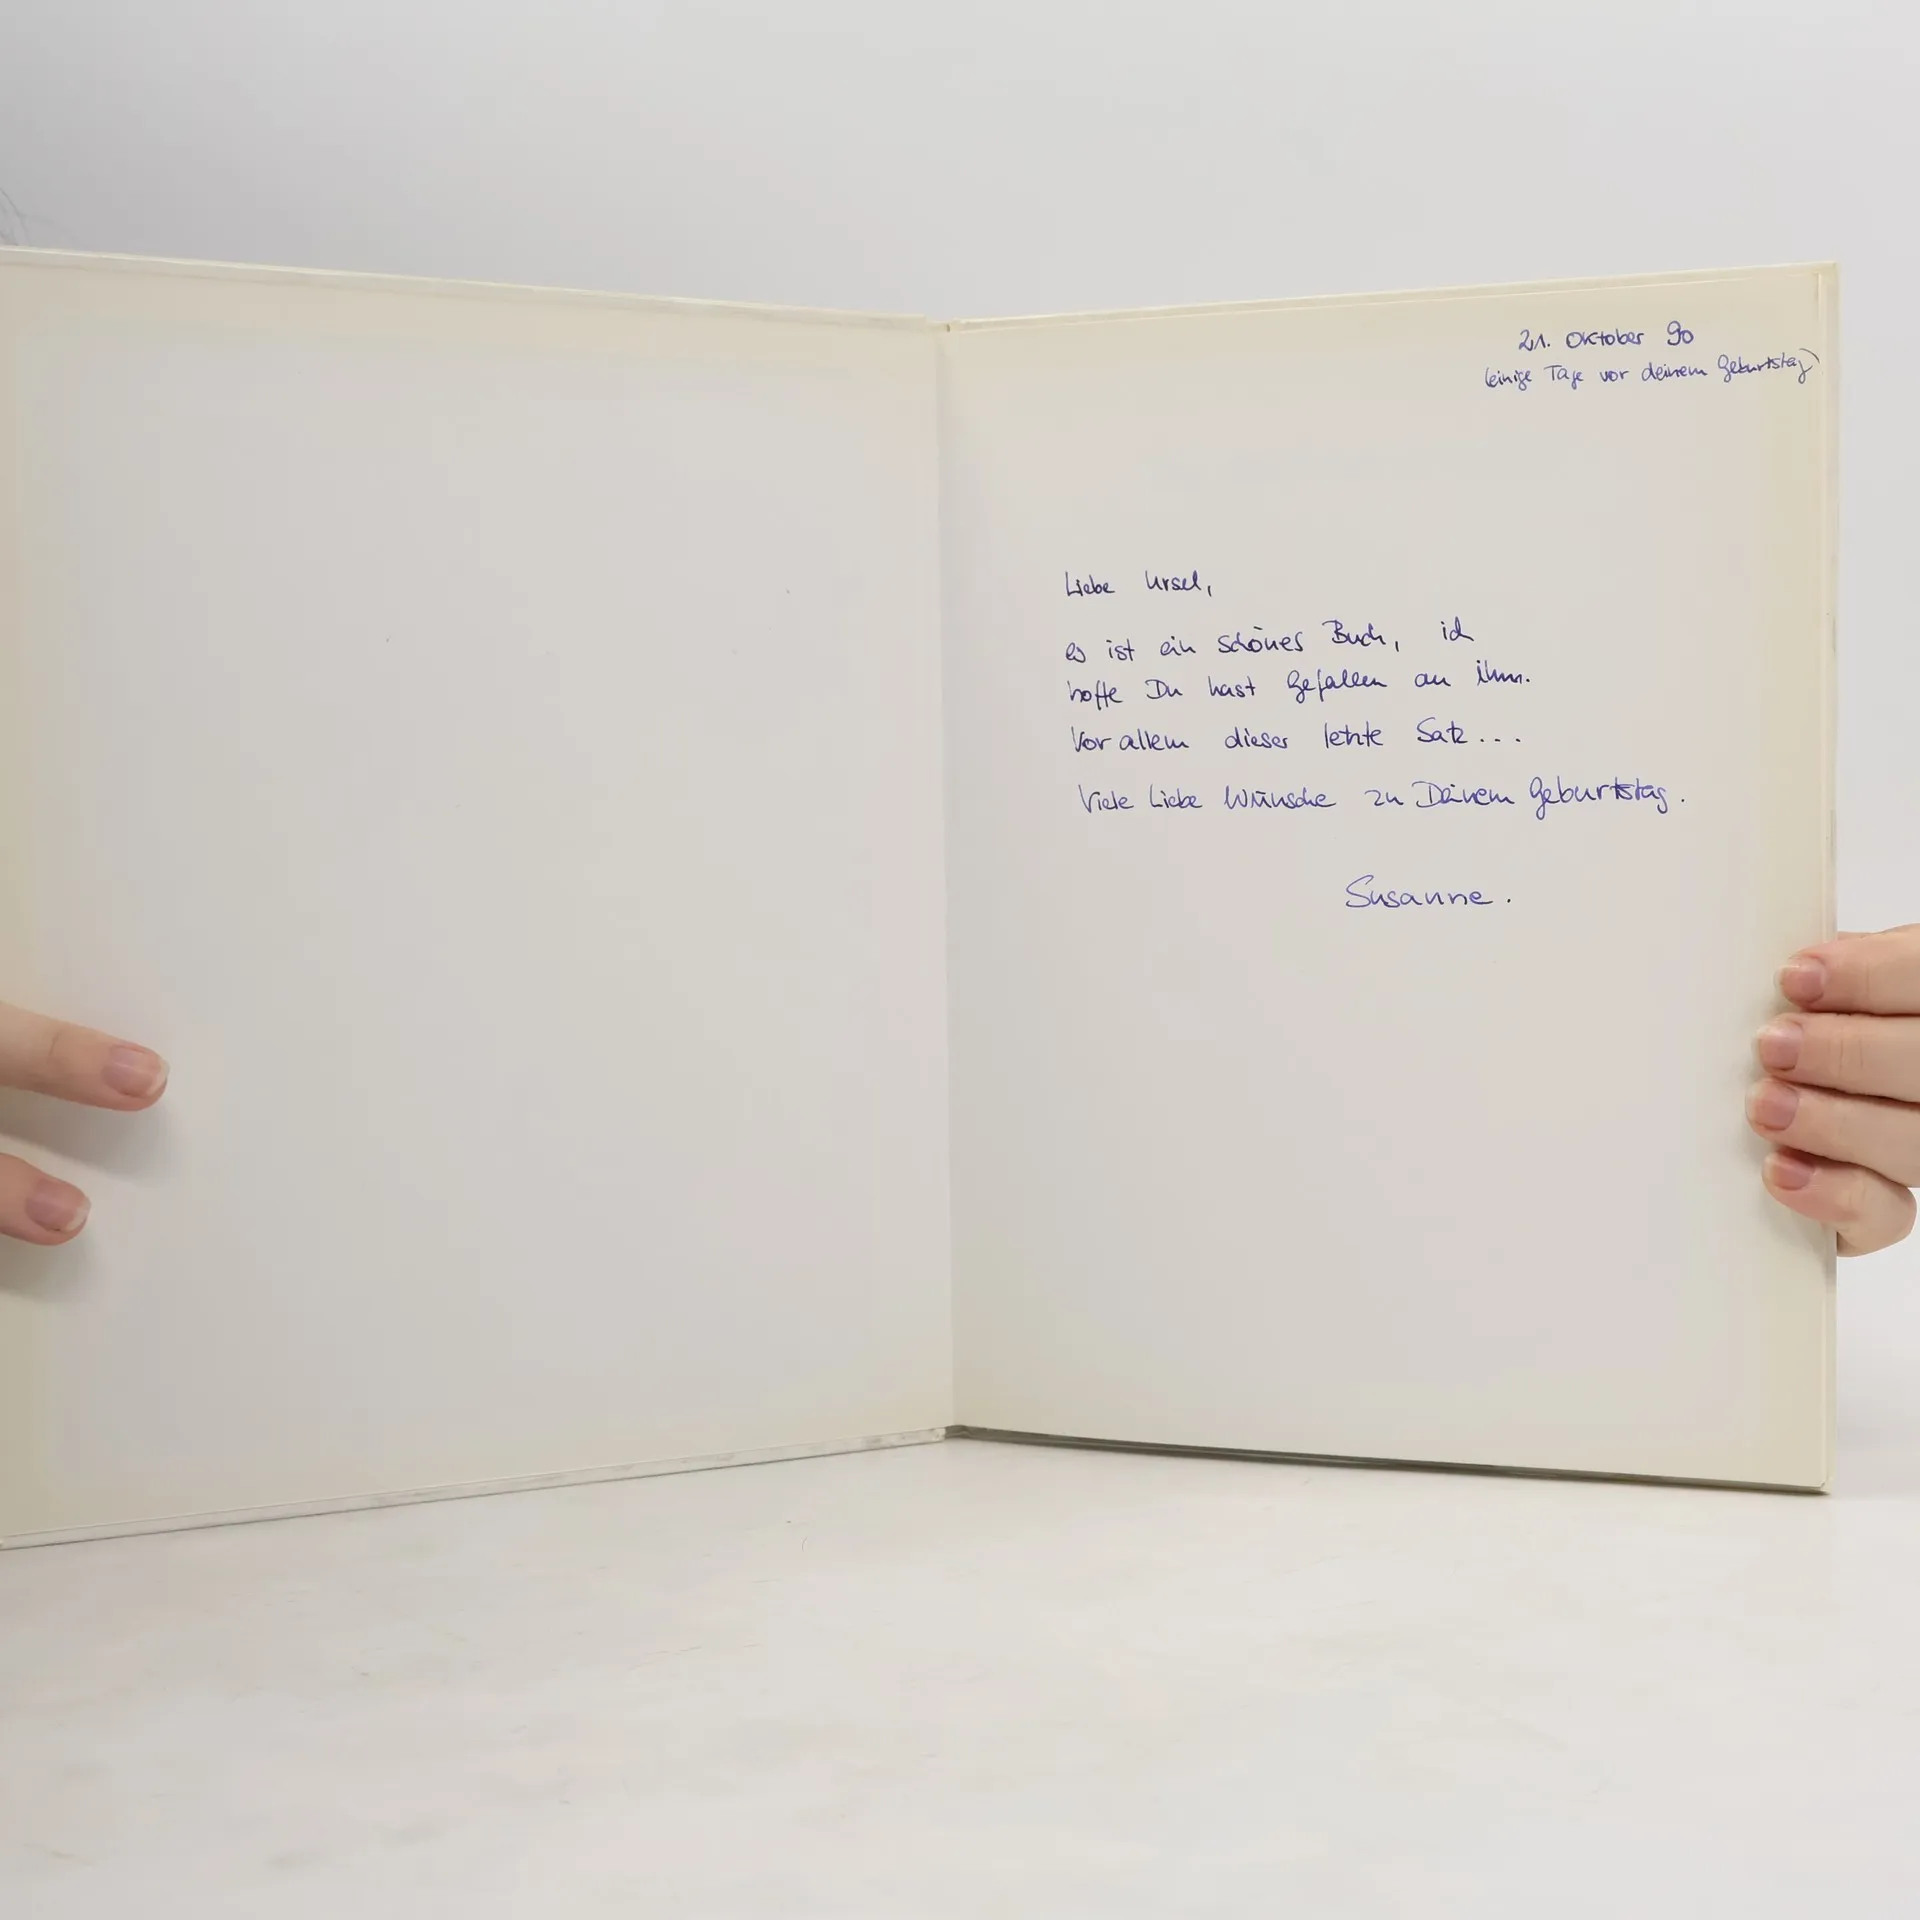 21. Oktober 90
(einige Tage vor deinem Geburtstag)
Liebe Ursel,
es ist ein schönes Buch, ich
hoffe Du hast Gefallen an ihm.
Vor allem dieser letzte Satz...
Viele Liebe Wünsche zu Deinem Geburtstag.
Susanne.